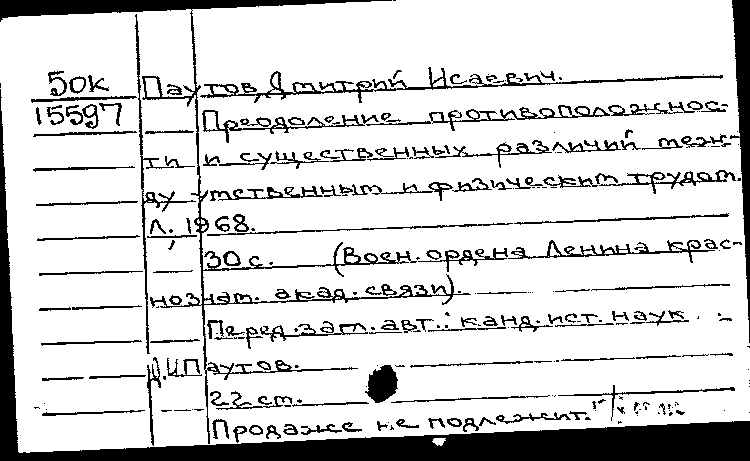 50к Паутов, Дмитрий Исаевич.
15597 Преодоление противоположнос-
ти и существенных различий меж-
ду умственным и физическим трудом.
Л., 1968.
30 с. (Воен. ордена Ленина крас-
нознам. акад. связи).
Перед. загл. авт.: канд. ист. наук
Д.И. Паутов.
22 см.
Продаже не подлежит.